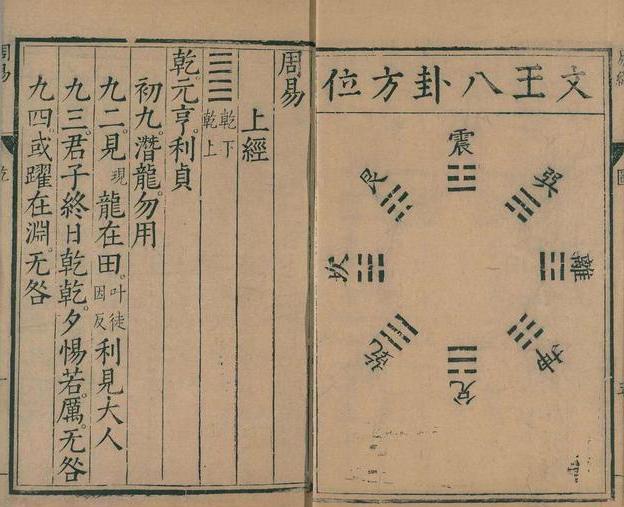 文王八卦方位
震
巽
離
坤
兌
乾
坎
艮
周易
上經
乾下
乾上
乾元亨。利貞
初九。潛龍。勿用
九二。見現龍在田。叶徒因反利見大人
九三。君子終日乾乾。夕惕若。厲。无咎
九四。或躍在淵。无咎
周易
乾